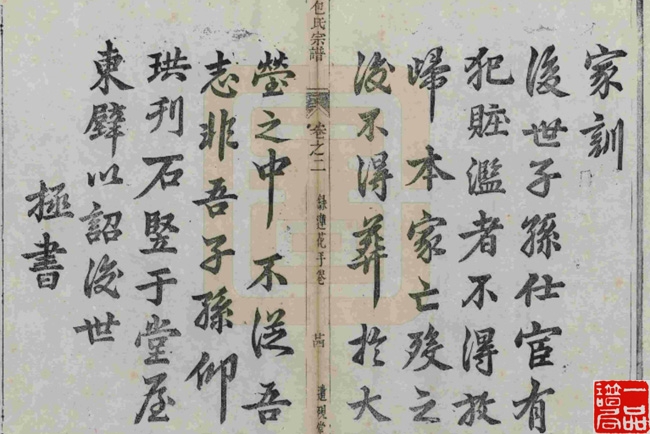 家訓
後世子孫仕宦有
犯賍濫者不得放
歸本家亡歿之
後不得葬於大
包氏宗譜
卷之二
塋之中不從吾
志非吾子孫仰
珙刊石竪于堂屋
東壁以詔後世
拯書
一品譜局